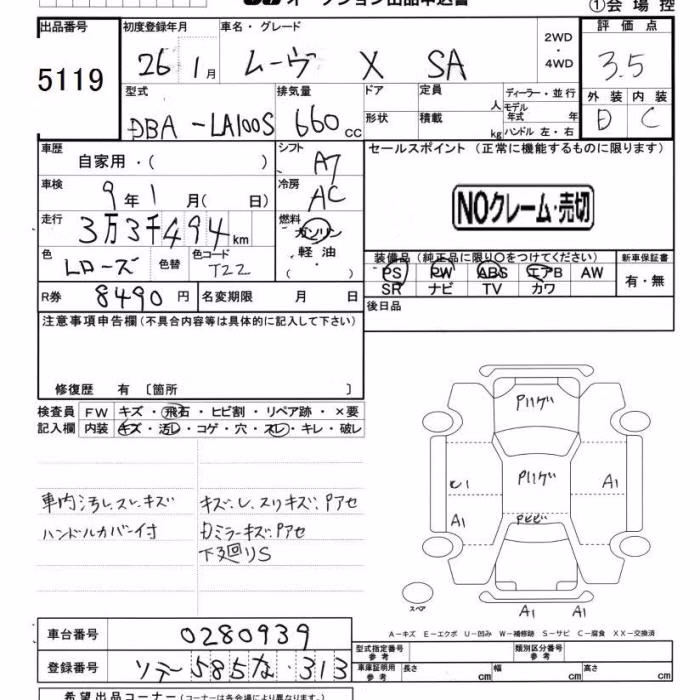 オークション出品申込書
①会場控
出品番号 初度登録年月 車名・グレード 2WD ・ 4WD 評価点
5119 26 1月 ムーヴ X SA 3.5
型式 排気量 ドア 定員 人 ディーラー・並行 外装 内装
DBA-LA100S 660cc 形状 積載 kg モデル年式 年 ハンドル 左・右 D C
車歴 自家用・( ) シフト A7 セールスポイント (正常に機能するものに限ります)
車検 9年1月(日) 冷房 AC
NOクレーム・売切
走行 3万3千494km 燃料 ガソリン 軽油 ( )
色 Lローズ 色替 色コード T22
装備品(純正品に限り○をつけてください) 新車保証書
PS PW ABS エアB AW
SR ナビ TV カワ 有・無
R券 8490円 名変期限 月 日
後日品
注意事項申告欄(不具合内容等は具体的に記入して下さい)
修復歴 有 〔箇所 〕
検査員 FW キズ・飛石・ヒビ割・リペア跡・×要
記入欄 内装 キズ・汚レ・コゲ・穴・スレ・キレ・破レ
Pハゲ
Pハゲ
A1
A1
Pヒビ
車内汚レ、スレ、キズ
キズ、レ、スリキズ、Pアセ
ハンドルカバー付
ミラーキズ、Pアセ
下廻りS
スペア
A1 A1
A-キズ E-エクボ U-凹み W-補修跡 S-サビ C-腐食 XX-交換済
車台番号 0280939
型式指定番号 参考 類別区分番号 参考
登録番号 ソデ-585な・313
車庫証明用 参考 長さ cm 幅 cm 高さ cm
希望出品コーナー(コーナーは各会場により異なります)